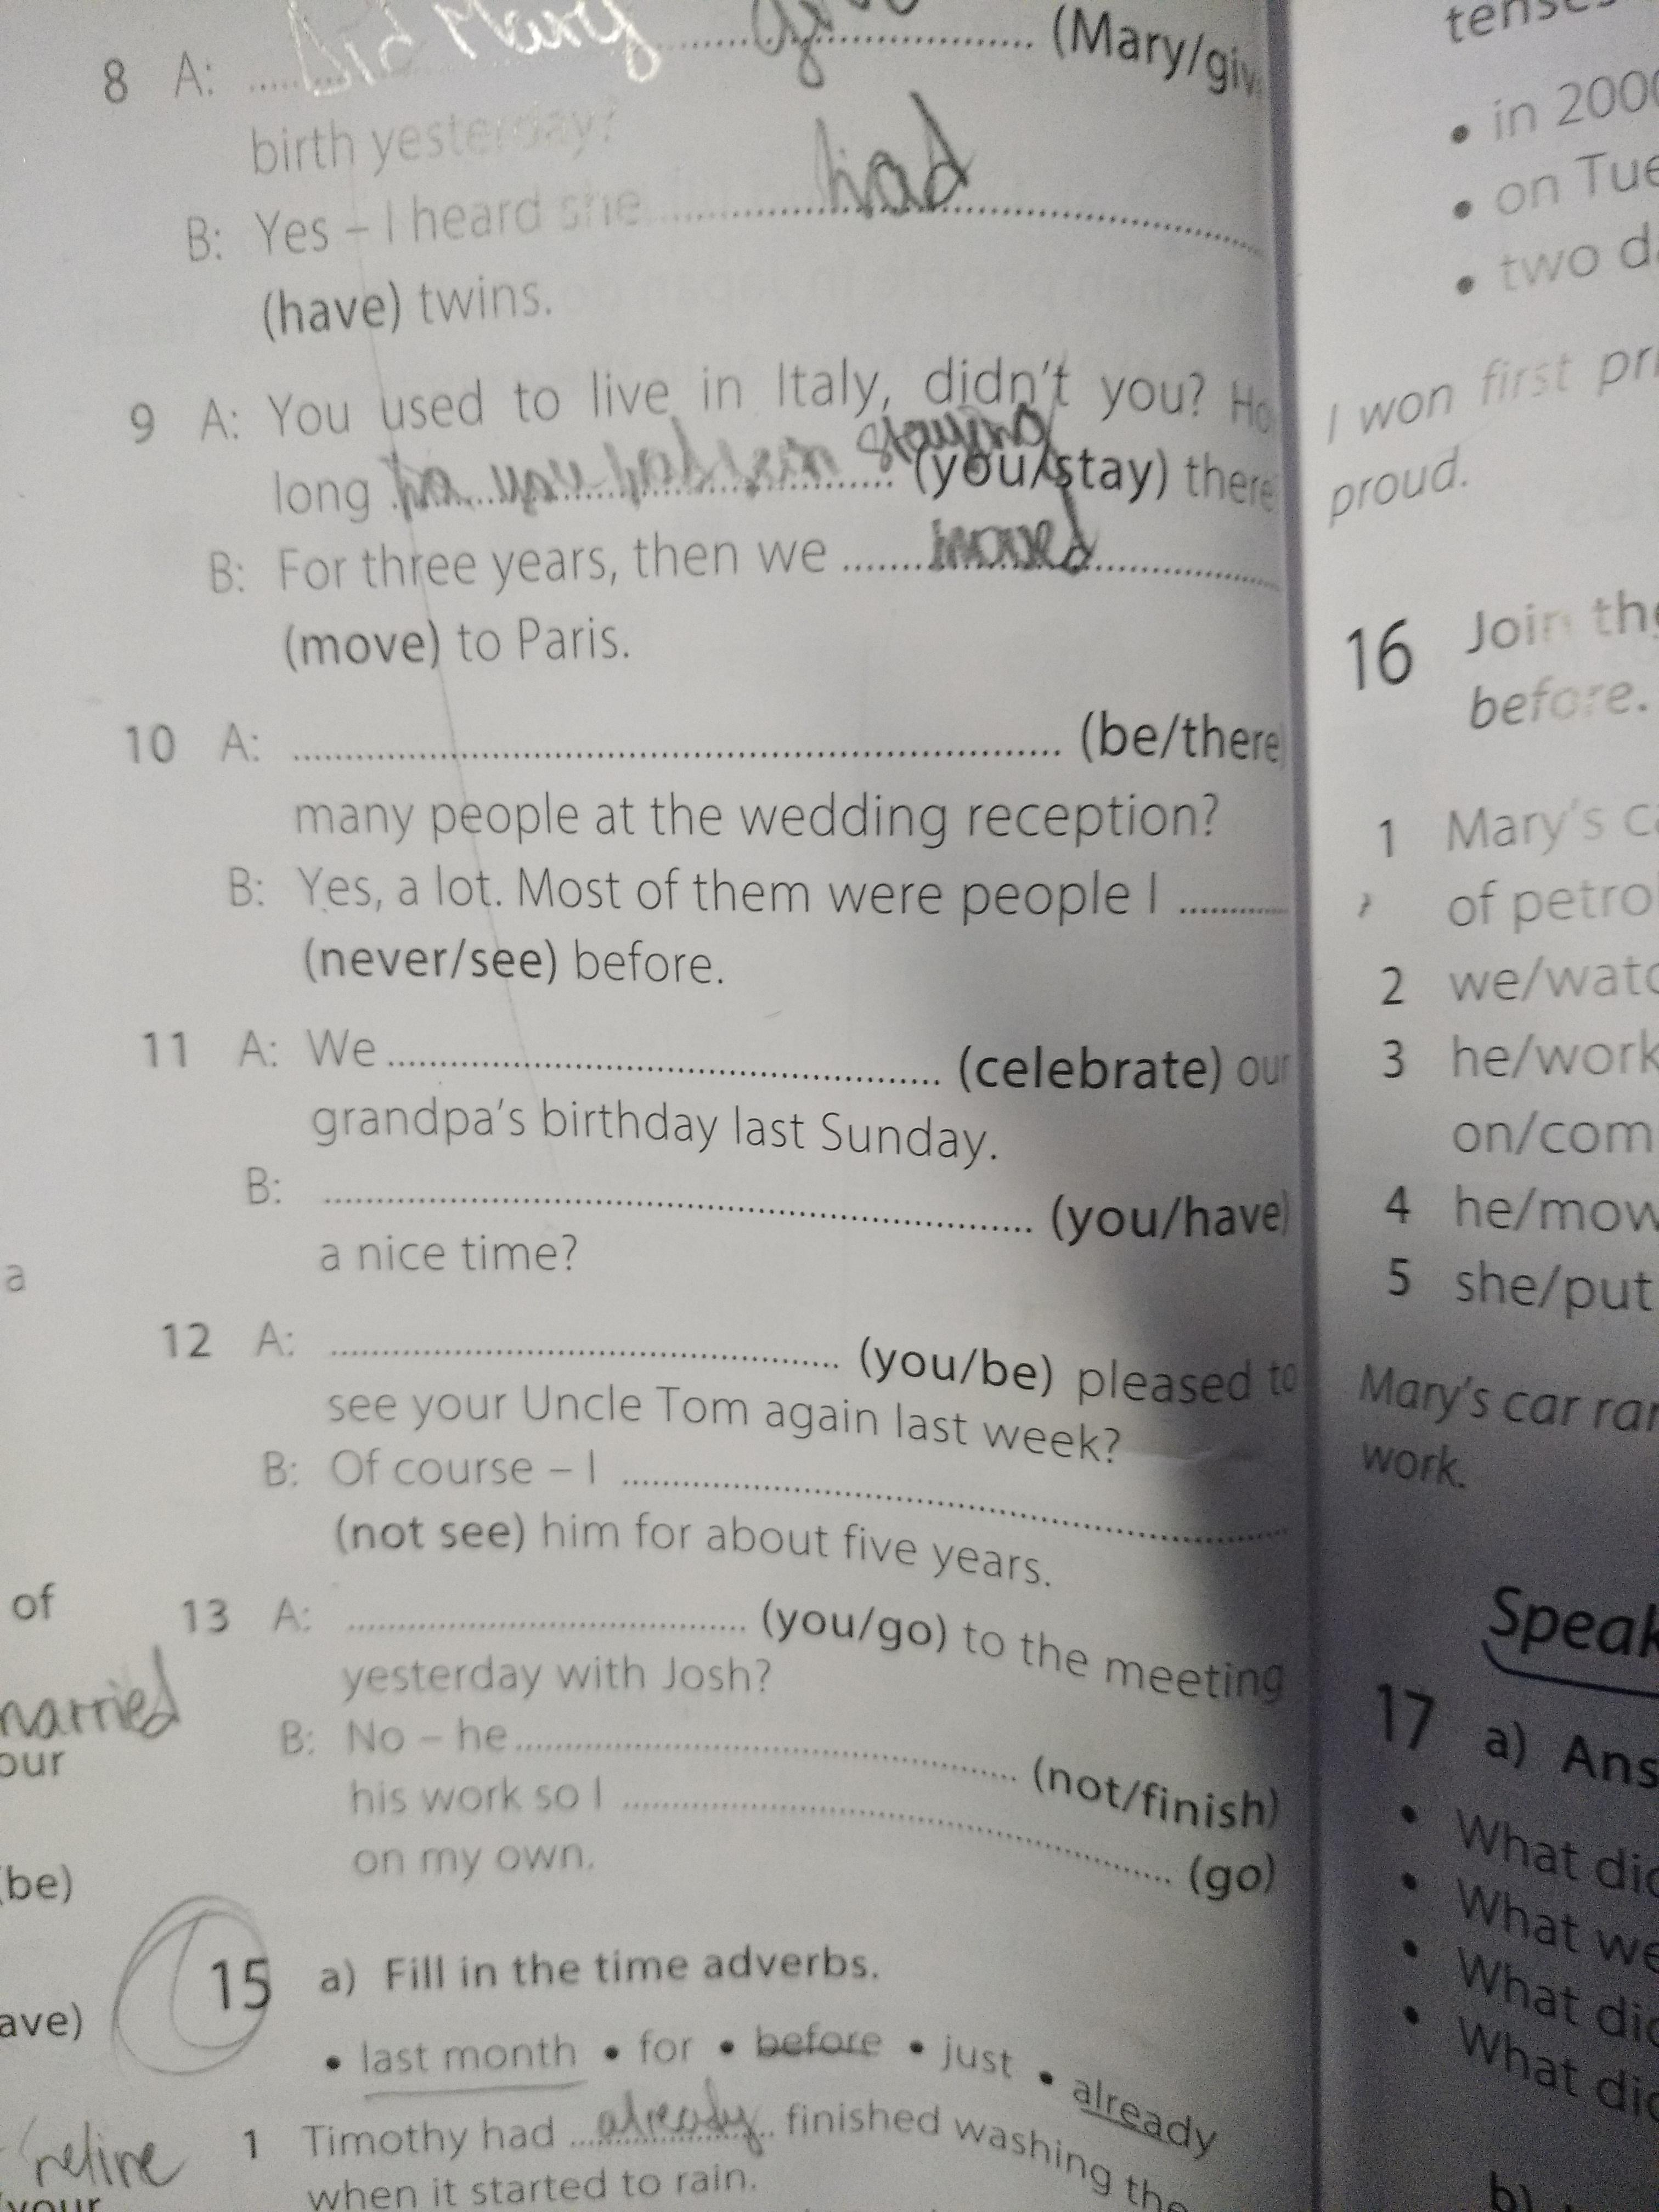 8 A: Did Mary give (Mary/giv
birth yesterday?
B: Yes – I heard she had
(have) twins.
9 A: You used to live in Italy, didn't you? Ho
long you staying (you/stay) there
B: For three years, then we moved
(move) to Paris.
10 A: (be/there)
many people at the wedding reception?
B: Yes, a lot. Most of them were people I
(never/see) before.
11 A: We (celebrate) our
grandpa's birthday last Sunday.
B: (you/have)
a nice time?
12 A: (you/be) pleased to
see your Uncle Tom again last week?
B: Of course – I
(not see) him for about five years.
13 A: (you/go) to the meeting
yesterday with Josh?
B: No – he (not/finish)
his work so I (go)
on my own.
15 a) Fill in the time adverbs.
• last month • for • before • just • already
1 Timothy had already finished washing the
when it started to rain.
a
of
married
our
(be)
ave)
retire
your
tenses
• in 200
• on Tue
• two da
I won first pri
proud.
16 Join the
before.
1 Mary's ca
of petrol
2 we/watc
3 he/work
on/com
4 he/mow
5 she/put
Mary's car ran
work.
Speak
17 a) Ans
• What did
• What we
• What did
• What did
b)